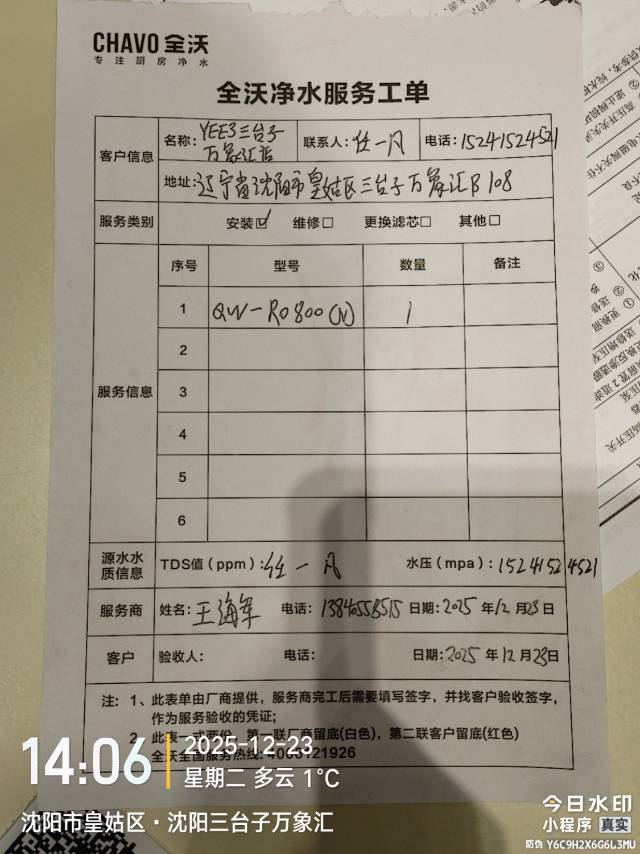 CHAVO 全沃
专注厨房净水
全沃净水服务工单
客户信息 名称: YEE3三台子万象汇店 联系人: 任一凡 电话: 15241524521
地址: 辽宁省沈阳市皇姑区三台子万象汇B108
服务类别 安装☑ 维修□ 更换滤芯□ 其他□
服务信息 序号 型号 数量 备注
1 QW-RO800(N) 1
2
3
4
5
6
源水水质信息 TDS值(ppm): 任一凡 水压(mpa): 15241524521
服务商 姓名: 王海军 电话: 日期: 2025年12月23日
客户 验收人: 电话: 日期: 2025年12月23日
注: 1、此表单由厂商提供,服务商完工后需要填写签字,并找客户验收签字,
作为服务验收的凭证;
2、此表一式两份,第一联厂商留底(白色),第二联客户留底(红色)
全沃全国服务热线: 4006121926
14:06
2025-12-23
星期二 多云 1°C
沈阳市皇姑区·沈阳三台子万象汇
今日水印
小程序 真实
防伪 Y6C9H2X6G6L3MU